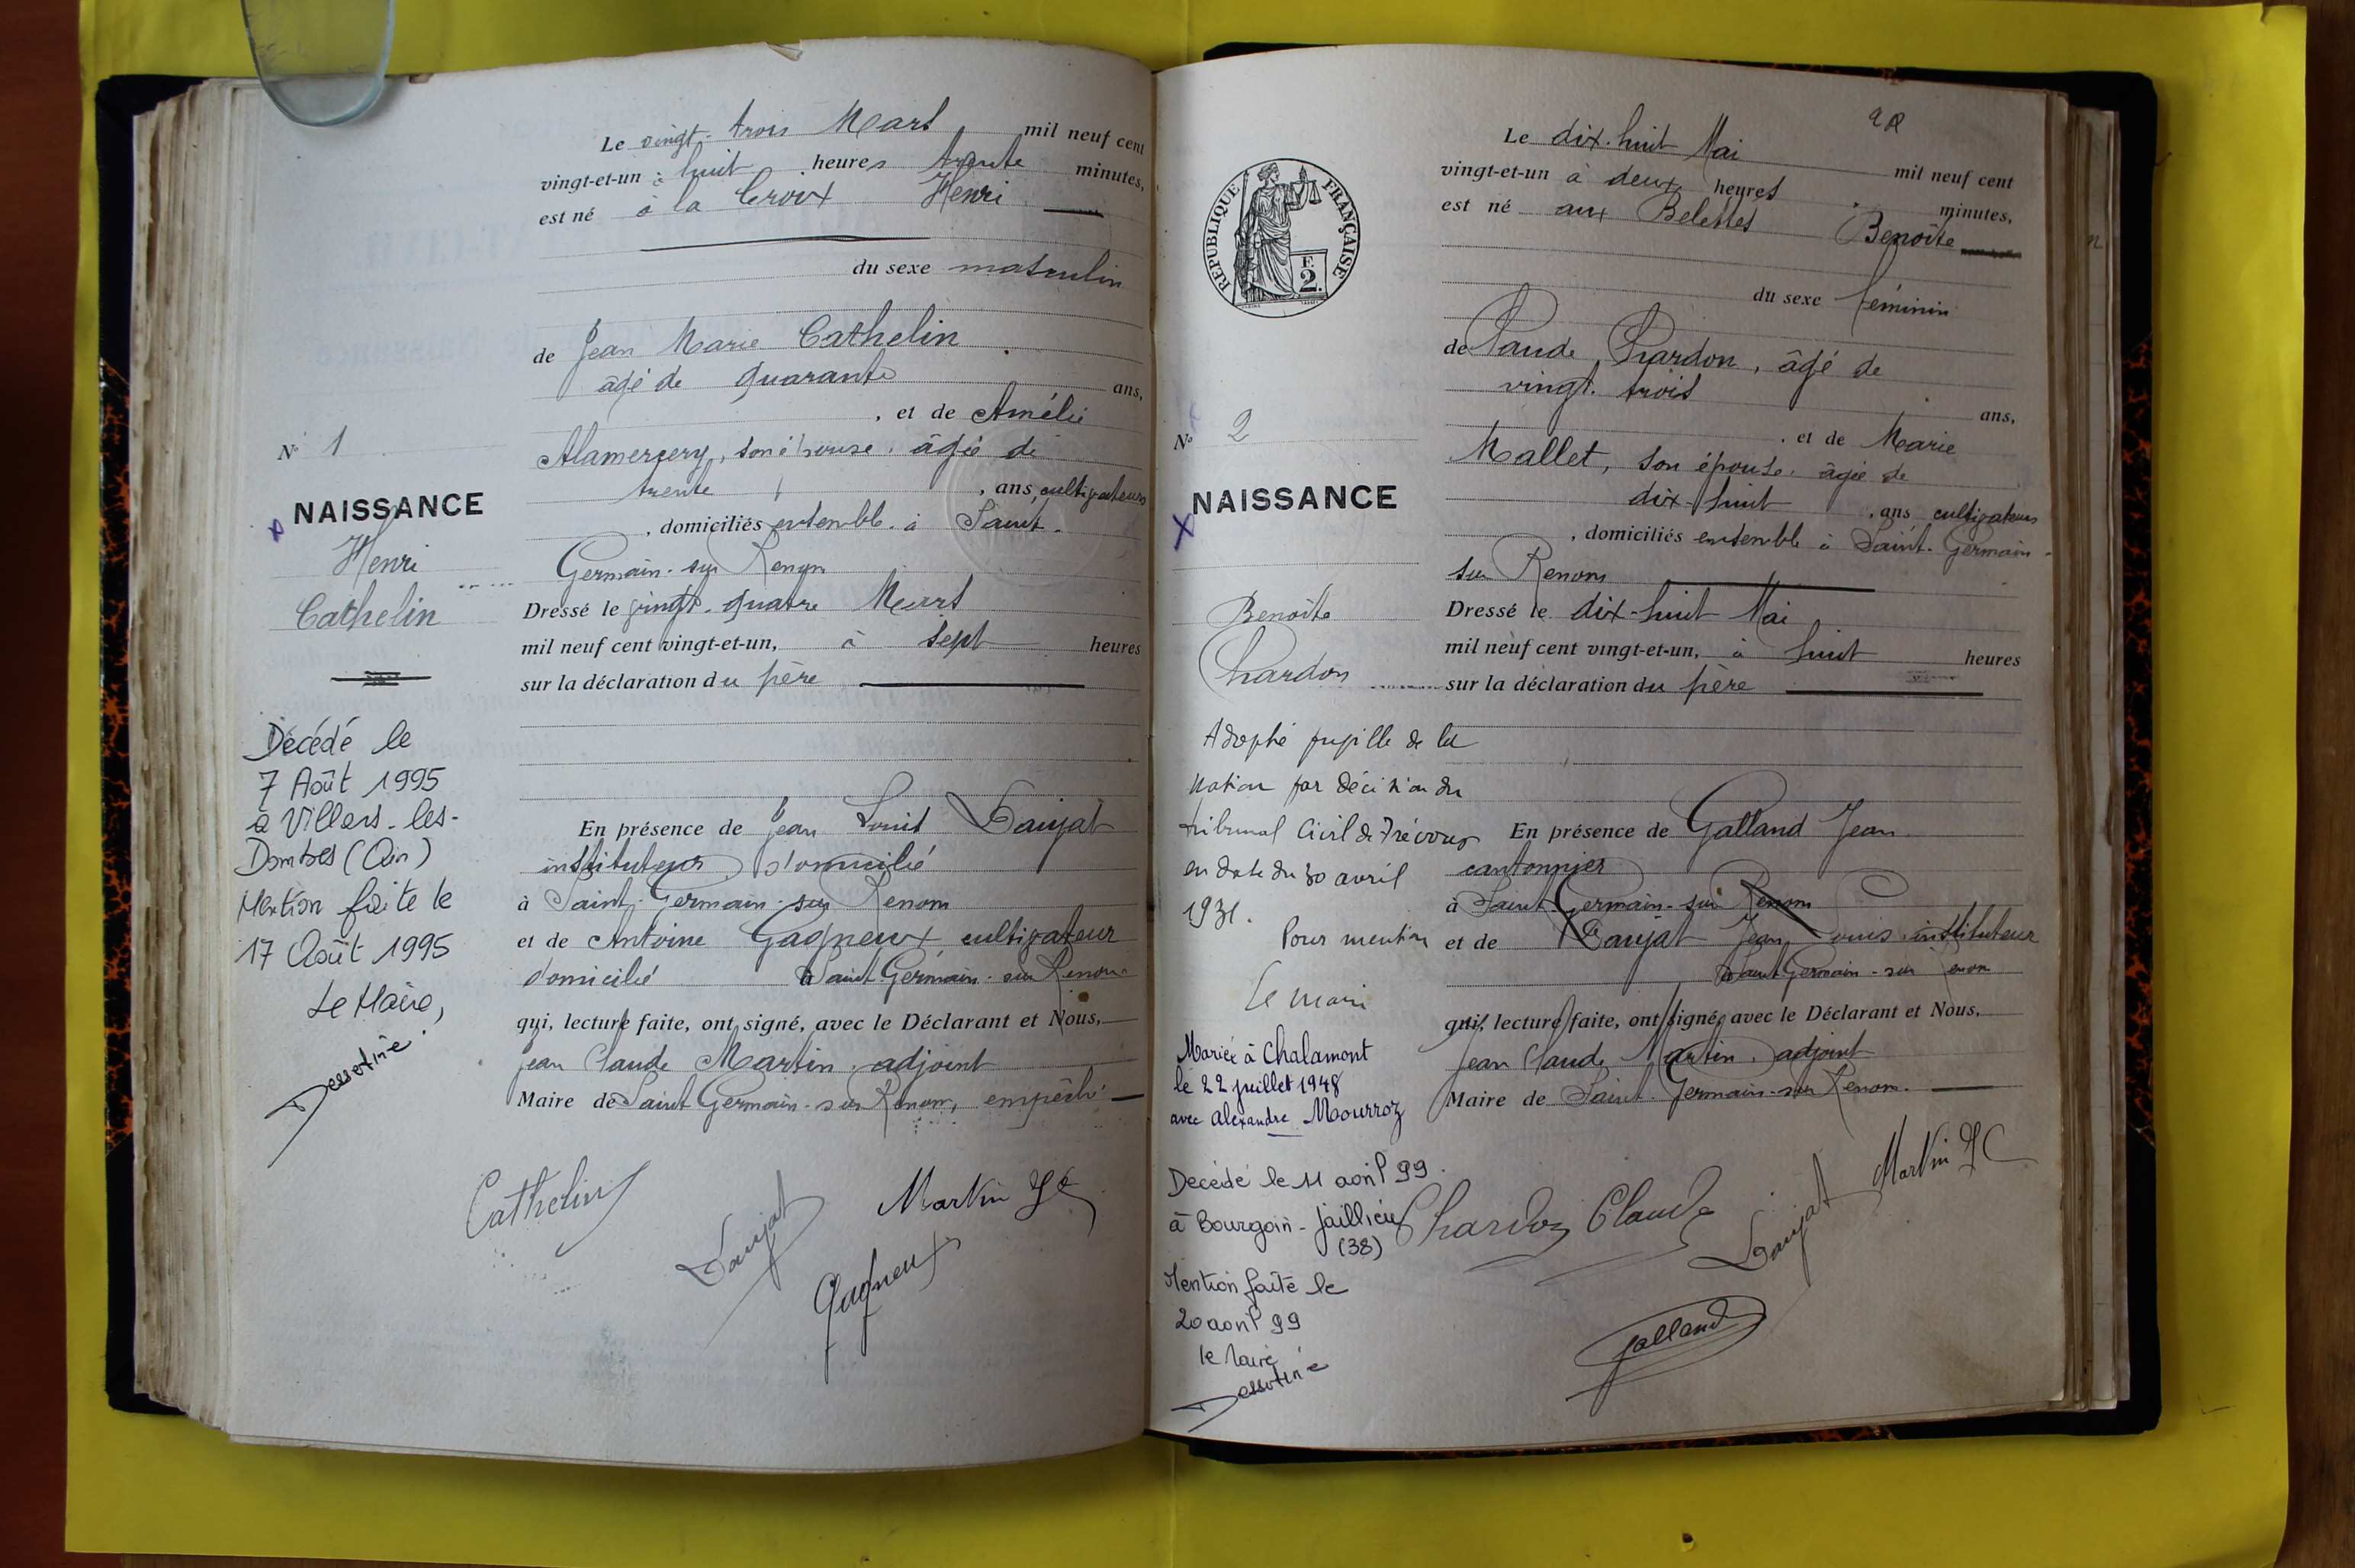 Le vingt-trois Mars mil neuf cent
vingt-et-un à huit heures trente minutes,
est né à la Croix Henri
du sexe masculin
de Jean Marie Cathelin
âgé de quarante ans,
, et de Amélie
Alamercery, son épouse. âgée de
trente , ans, cultivateurs
, domiciliés ensemble à Saint-
Germain-sur Renom
Dressé le vingt-quatre Mars
mil neuf cent vingt-et-un, à sept heures
sur la déclaration du père
En présence de Jean Louis Daujat
instituteur domicilié
à Saint-Germain-sur Renom
et de Antoine Gagneux cultivateur
domicilié à Saint-Germain-sur Renom
qui, lecture faite, ont signé, avec le Déclarant et Nous,
Jean Claude Martin adjoint
Maire de Saint Germain-sur Renom, empêché
Cathelin
Daujat
Martin JC
Gagneux
N° 1
NAISSANCE
Henri
Cathelin
Décédé le
7 Août 1995
à Villars-les-
Dombes (Ain)
Mention faite le
17 Août 1995
Le Maire,
22
REPUBLIQUE FRANÇAISE
F.
2.
Le dix-huit Mai mil neuf cent
vingt-et-un à deux heures minutes,
est né aux Belettes Benoîte
du sexe féminin
de Claude Chardon, âgé de
vingt-trois ans,
, et de Marie
Mallet, son épouse. âgée de
dix-huit , ans cultivateurs
, domiciliés ensemble à Saint-Germain-
sur Renom
Dressé le dix-huit Mai
mil neuf cent vingt-et-un, à huit heures
sur la déclaration du père
En présence de Galland Jean
cantonnier
à Saint-Germain-sur Renom
et de Daujat Jean Louis instituteur
à Saint-Germain-sur Renom
qui, lecture faite, ont signé, avec le Déclarant et Nous,
Jean Claude Martin, adjoint
Maire de Saint-Germain-sur Renom.
Chardon Claude
Daujat
Martin JC
Galland
N° 2
NAISSANCE
Benoîte
Chardon
Adoptée pupille de la
Nation par décision du
tribunal Civil de Trévoux
en date du 30 avril
1931.
Pour mention
Le maire
Mariée à Chalamont
le 22 juillet 1948
avec Alexandre Mourroz
Décédé le 11 avril 99
à Bourgoin-Jaillieu
(38)
Mention faite le
20 avril 99
le Maire